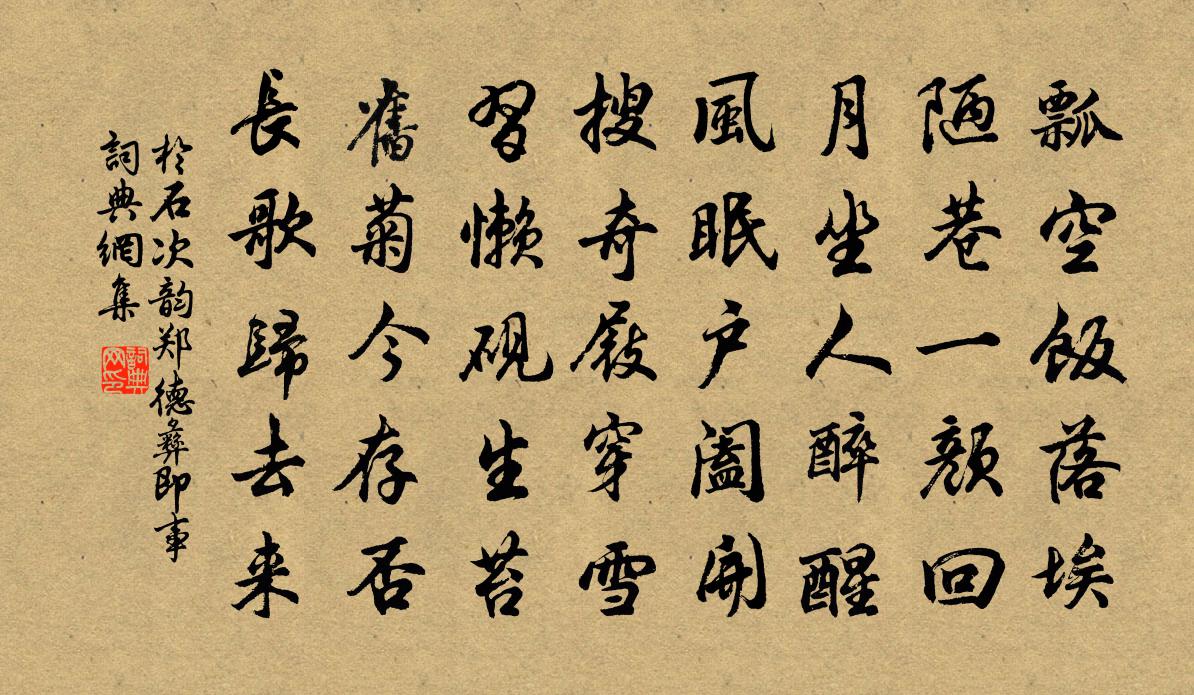 瓢空飯落埃
陋巷一顔回
月坐人醉醒
風眠户闔開
搜奇屐穿雪
習懶硯生苔
舊菊今存否
長歌歸去来
於石次韵郑德彝即事
詞典網集
詞典网印